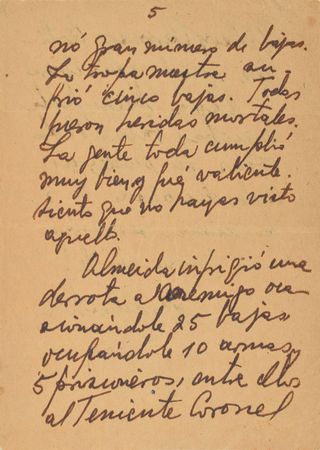 5
nó gran número de bajas.
La tropa nuestra su-
frió cinco bajas. Todas
fueron heridas mortales.
La gente toda cumplió
muy bien y fué valiente.
Siento que no hayas visto
aquello.
Almeida infrigió una
derrota al enemigo oca
sionándole 25 bajas,
ocupándole 10 armas y
5 prisioneros, entre ellos
al Teniente Coronel